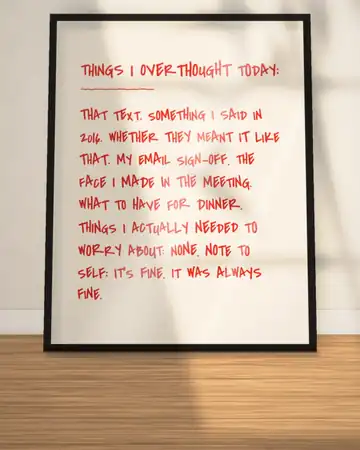 THINGS I OVERTHOUGHT TODAY:
THAT TEXT. SOMETHING I SAID IN
2016. WHETHER THEY MEANT IT LIKE
THAT. MY EMAIL SIGN-OFF. THE
FACE I MADE IN THE MEETING.
WHAT TO HAVE FOR DINNER.
THINGS I ACTUALLY NEEDED TO
WORRY ABOUT: NONE. NOTE TO
SELF: IT'S FINE. IT WAS ALWAYS
FINE.